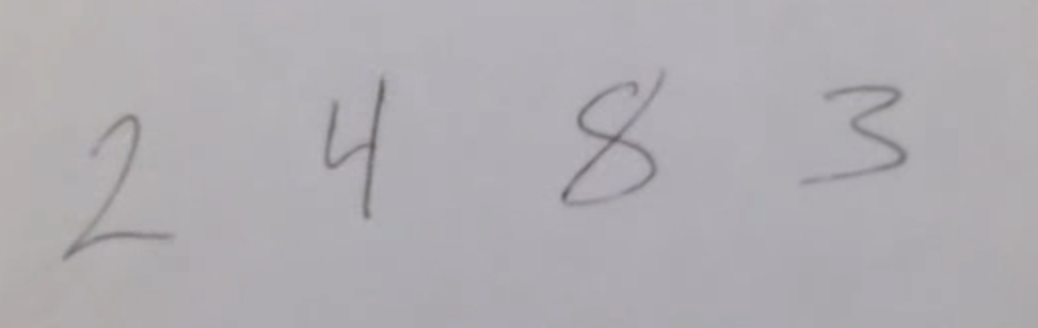 2 4 8 3